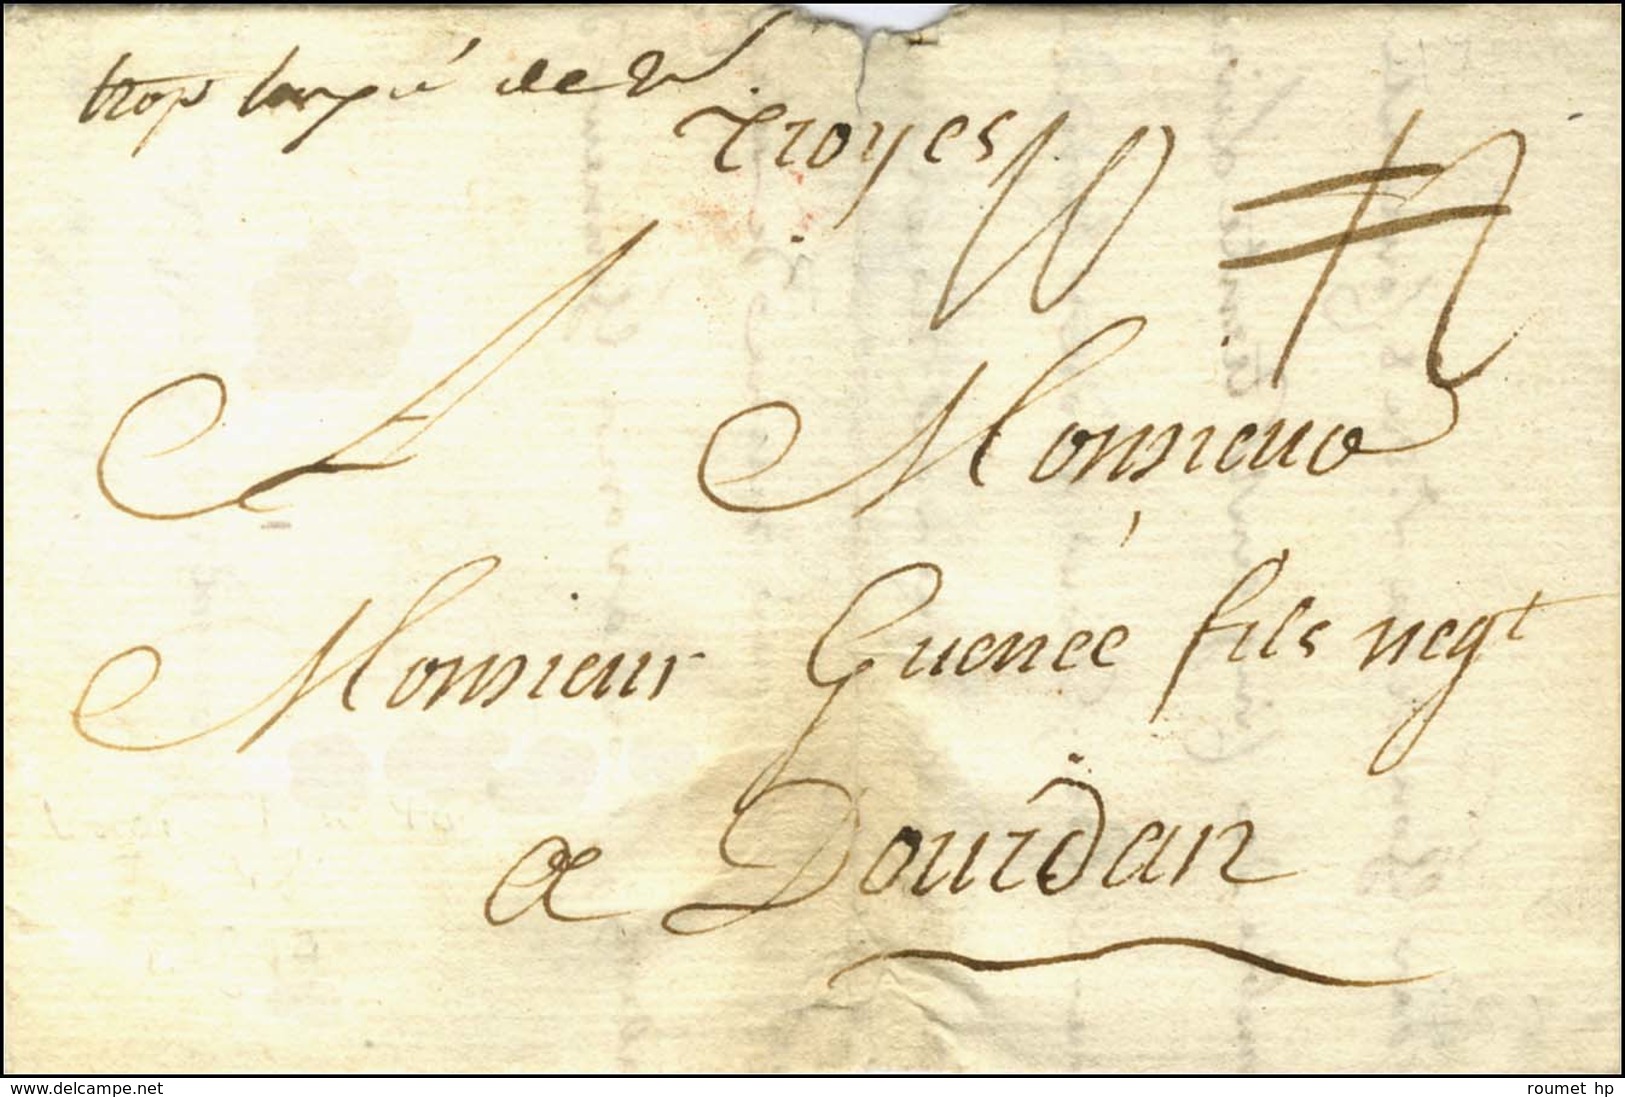 trop taxé de 2s
Troyes
10
12
A Monsieur
Monsieur Guenée fils negt
a Dourdan
www.delcampe.net
roumet hp